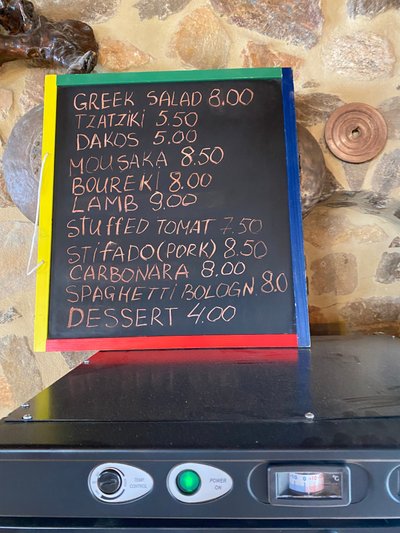 GREEK SALAD 8.00
TZATZIKI 5.50
DAKOS 5.00
MOUSAKA 8.50
BOUREKI 8.00
LAMB 9.00
STUFFED TOMAT 7.50
STIFADO(PORK) 8.50
CARBONARA 8.00
SPAGHETTI BOLOGN. 8.0
DESSERT 4.00
TEMP. CONTROL
POWER ON
°C